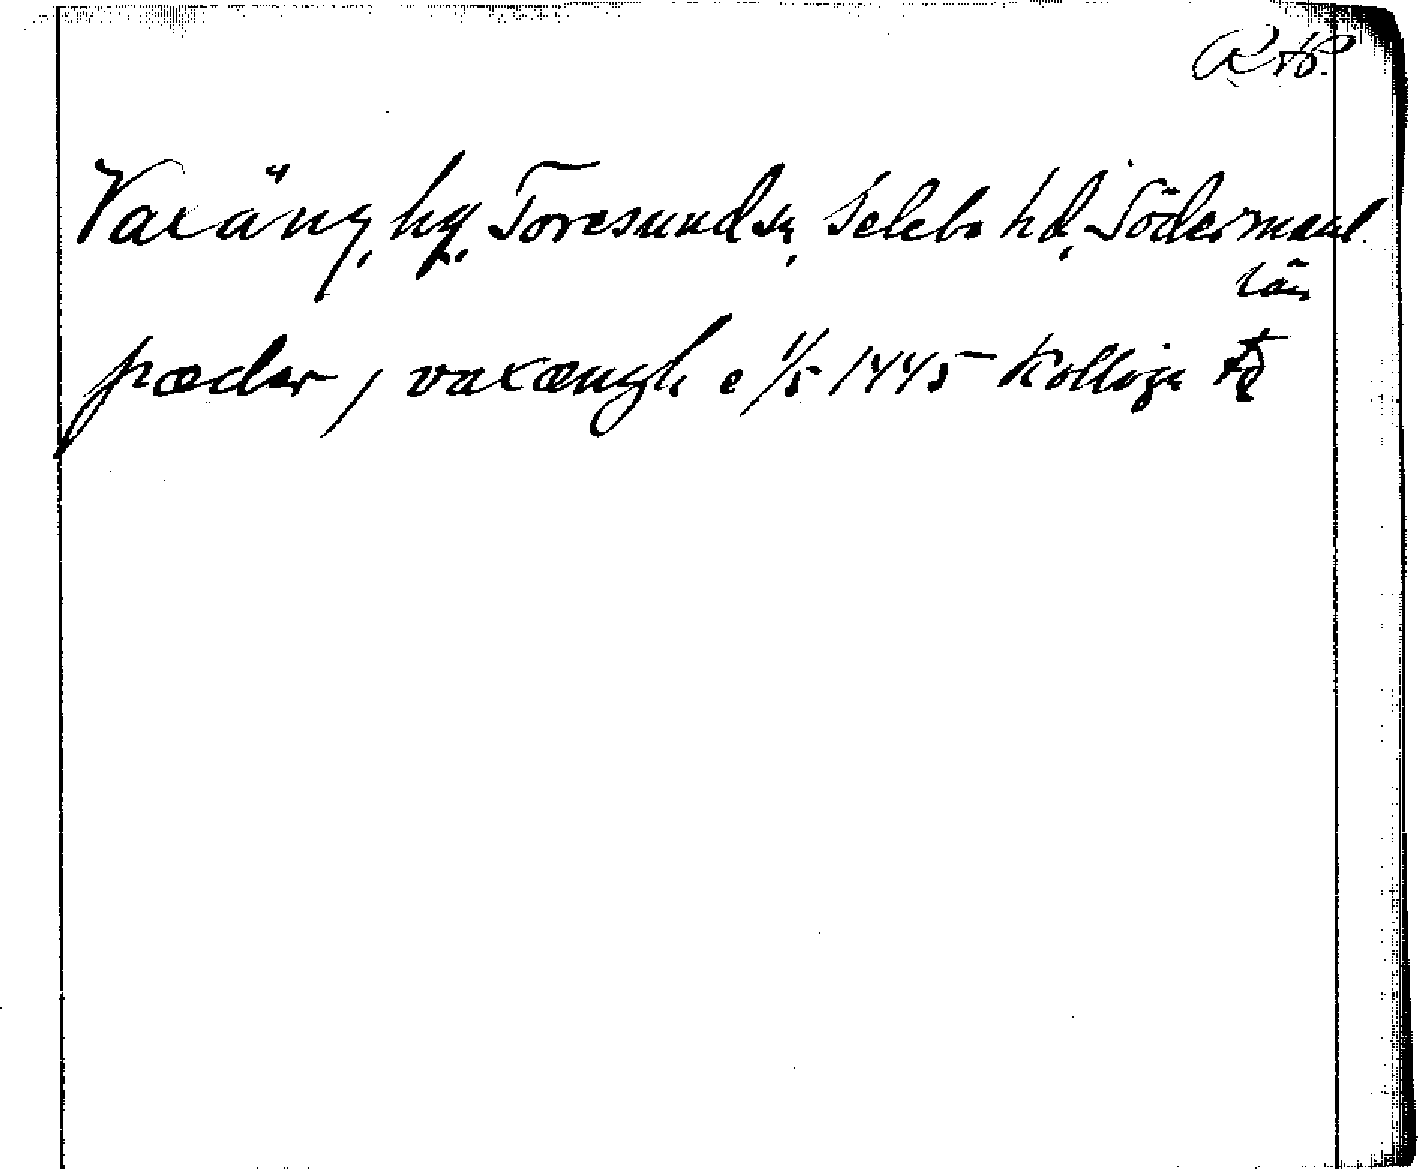 Vaxäng, hg., Toresund sn, Selebo hd, Södermanl.
län
pæder j vaxængh e 1/5 1445 Kolloge